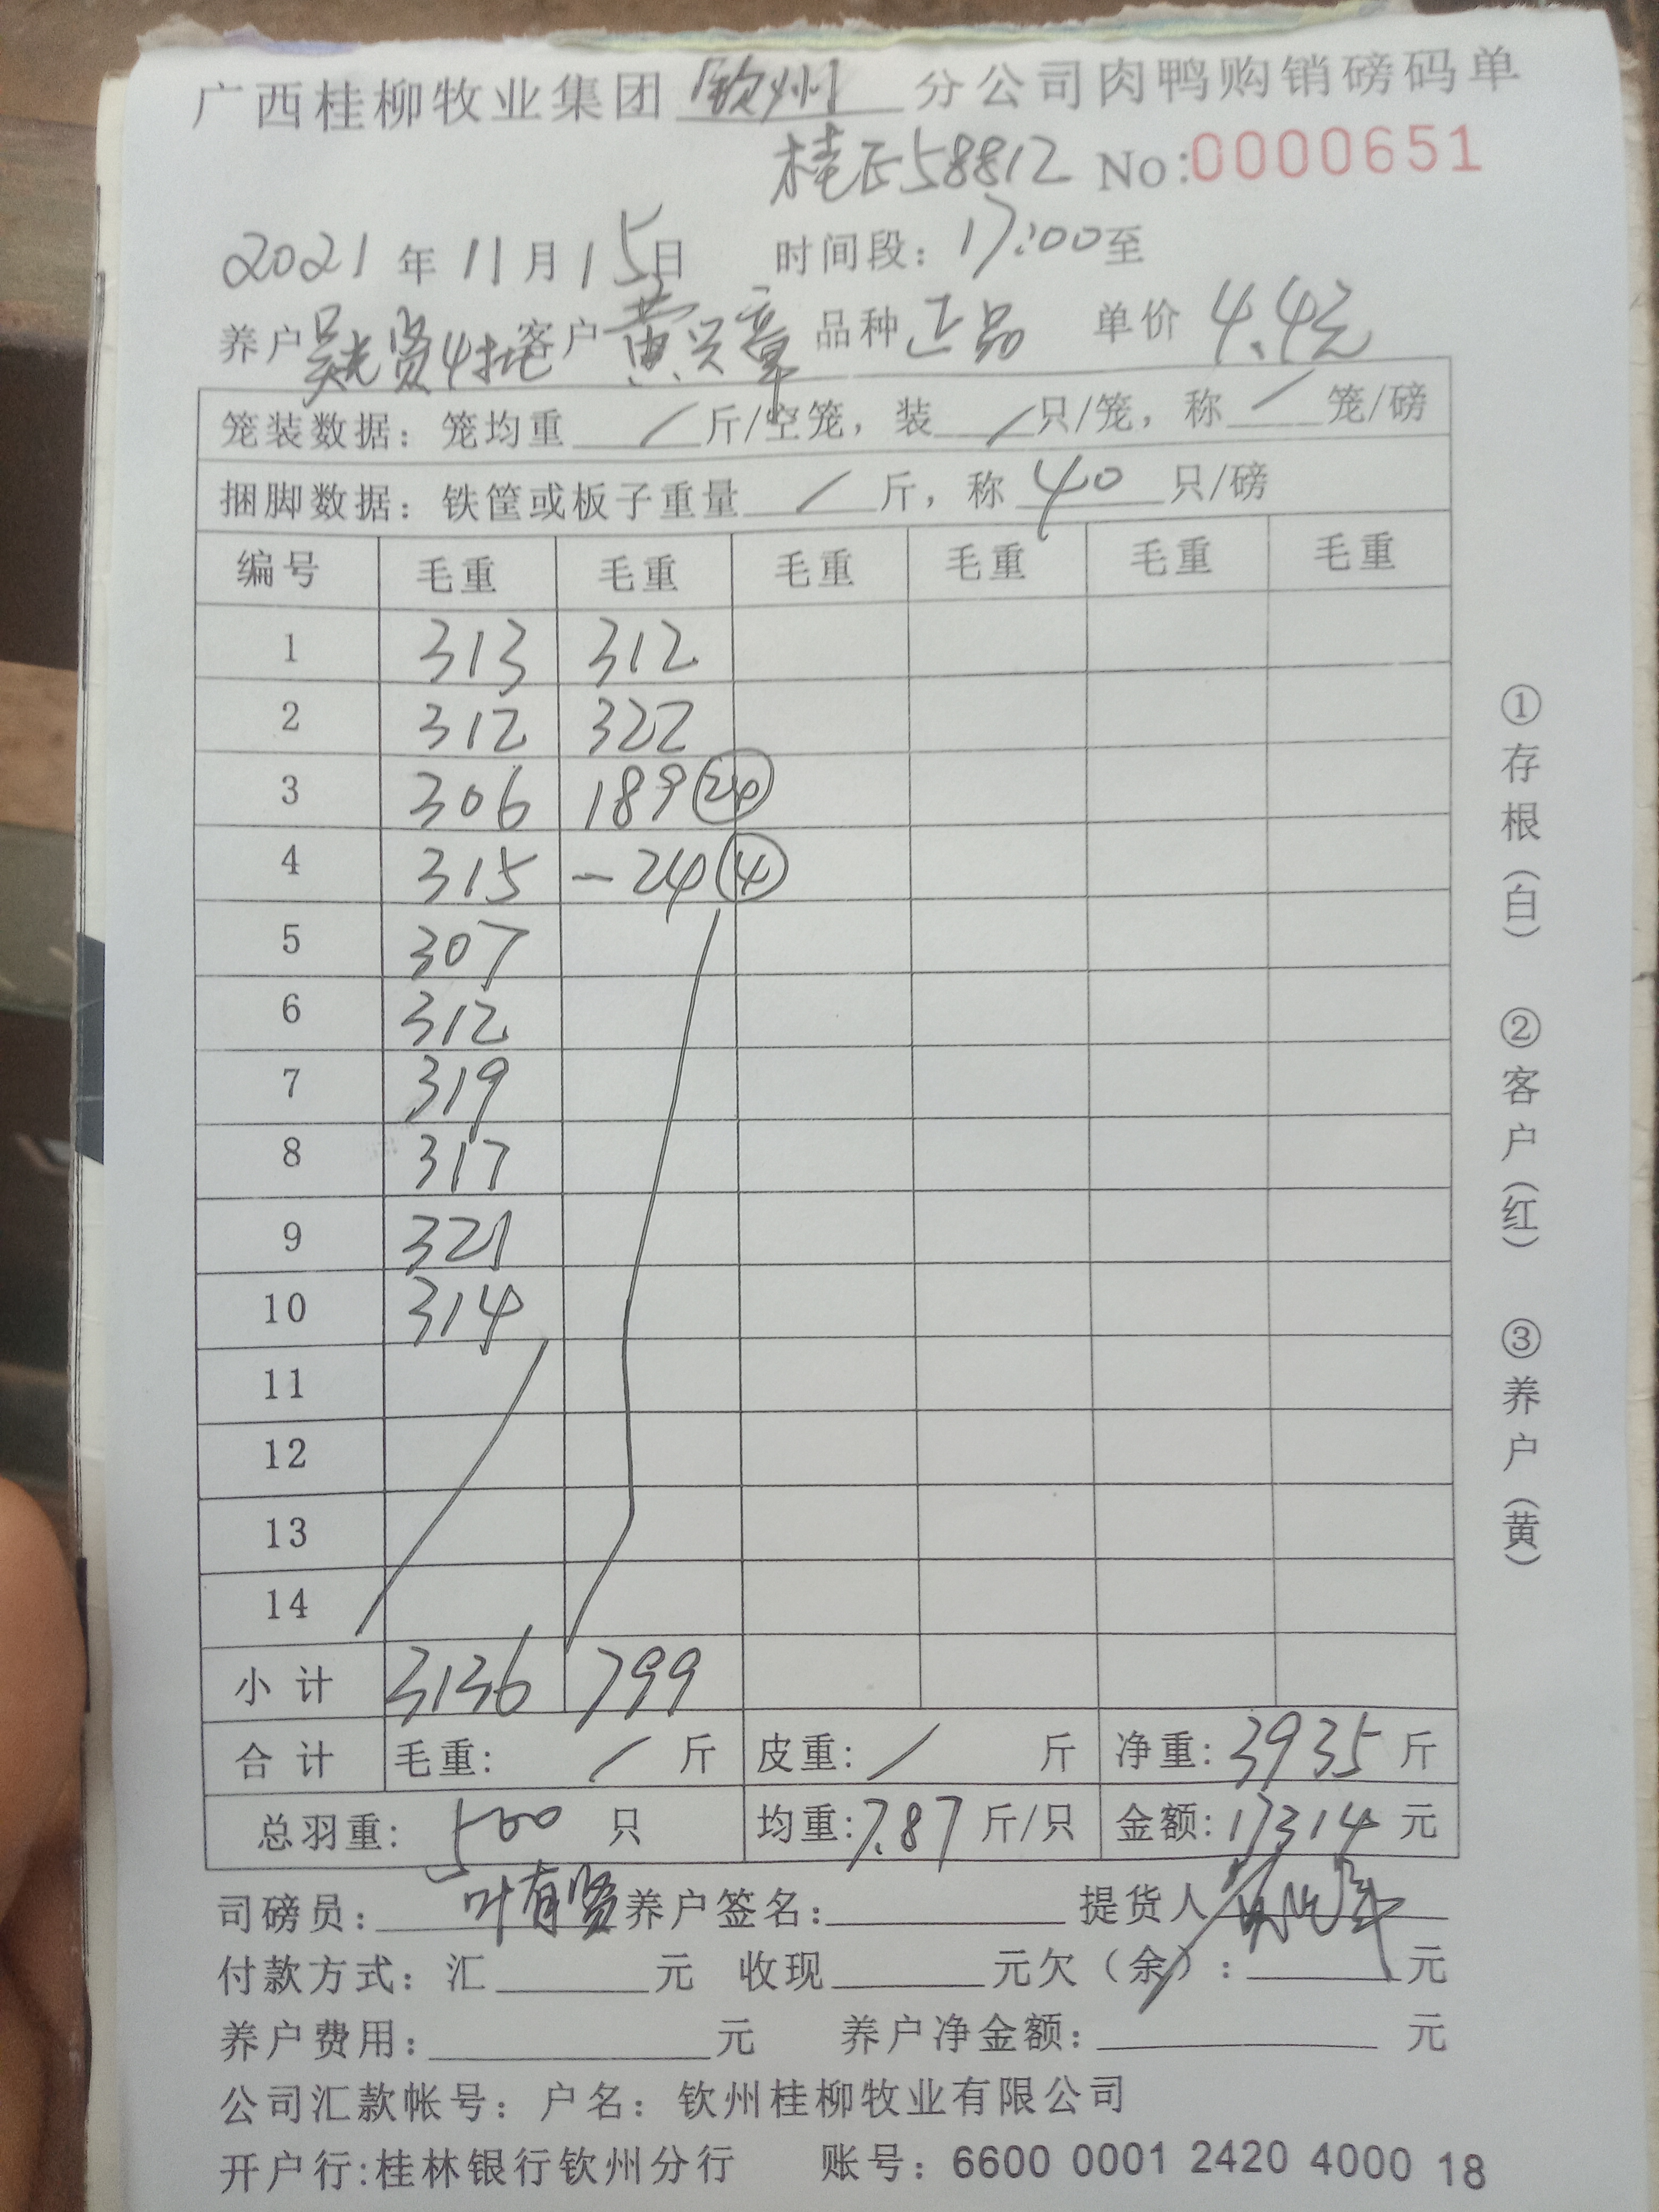 广西桂柳牧业集团 钦州 分公司肉鸭购销磅码单
桂E58812 No:0000651
2021 年 11 月 15 日 时间段: 17:00 至
养户 贤4批 客户 黄兴章 品种 正品 单价 4.4元
笼装数据: 笼均重 / 斤/空笼, 装 / 只/笼, 称 / 笼/磅
捆脚数据: 铁筐或板子重量 / 斤, 称 40 只/磅
编号 毛重 毛重 毛重 毛重 毛重 毛重
1 313 312
2 312 322
3 306 189 (24)
4 315 -24 (4)
5 307
6 312
7 319
8 317
9 321
10 314
11
12
13
14
小计 3136 799
合计 毛重: / 斤 皮重: / 斤 净重: 3935 斤
总羽重: 500 只 均重: 7.87 斤/只 金额: 17314 元
司磅员: 叶有贤 养户签名: 提货人
付款方式: 汇 元 收现 元欠(余): 元
养户费用: 元 养户净金额: 元
公司汇款帐号: 户名: 钦州桂柳牧业有限公司
开户行:桂林银行钦州分行 账号: 6600 0001 2420 4000 18
①存根(白) ②客户(红) ③养户(黄)